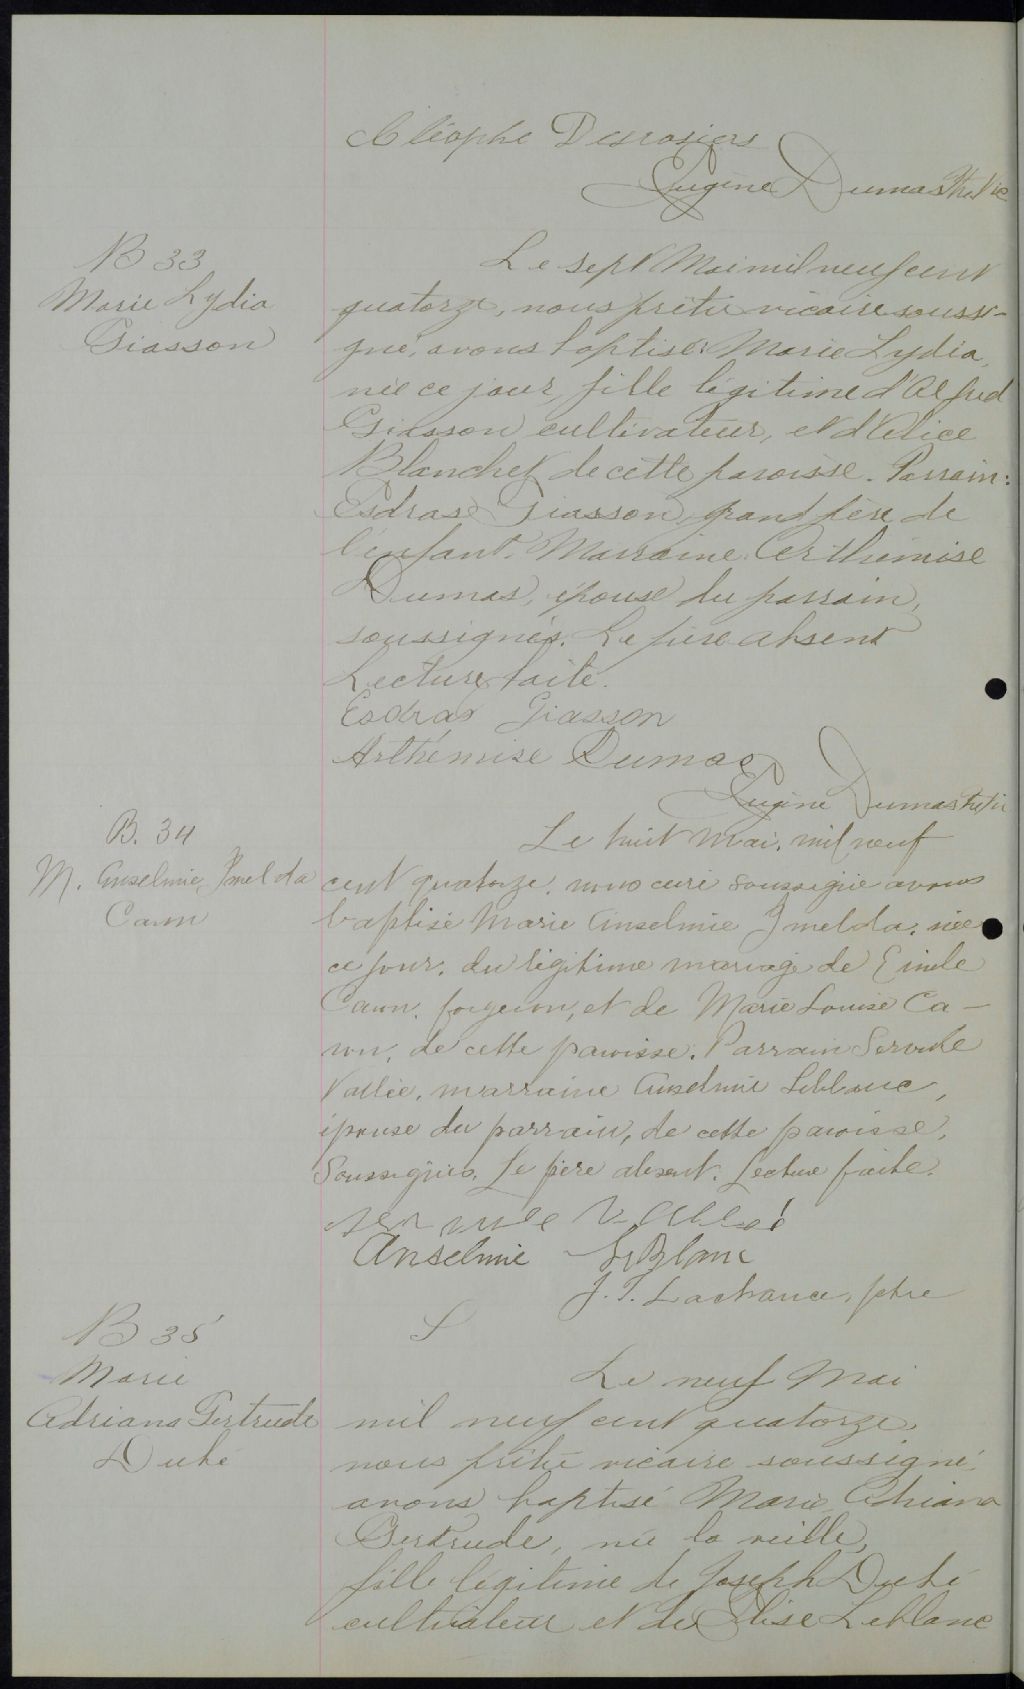 Cléophe Desrosiers
Eugène Dumas Ptre Vic
B 33
Marie Lydia
Giasson
Le sept Mai mil neuf cent
quatorze, nous prêtre vicaire soussi-
gné, avons baptisé Marie Lydia,
née ce jour, fille légitime d'Alfred
Giasson cultivateur, et d'Alice
Blanchet de cette paroisse. Parrain:
Esdras Giasson, grand père de
l'enfant. Marraine: Arthémise
Dumas, épouse du parrain,
soussignés. Le père absent
Lecture faite.
Esdras Giasson
Arthémise Dumas
Eugène Dumas Ptre Vic
B. 34
M. Anselmie Imelda
Caron
Le huit mai, mil neuf
cent quatorze, nous curé soussigné avons
baptisé Marie Anselmie Imelda, née
ce jour, du légitime mariage de Emile
Caron, forgeron, et de Marie Louise Ca-
ron, de cette paroisse. Parrain Servule
Vallée, marraine Anselmie Leblanc,
épouse du parrain, de cette paroisse,
Soussignés. Le père absent. Lecture faite.
servule vallée
Anselmie LeBlanc
J. T. Lachance, ptre
B 35
Marie
Adriana Gertrude
Dubé
Le neuf Mai
mil neuf cent quatorze,
nous prêtre vicaire soussigné
avons baptisé Marie Adriana
Gertrude, née la veille,
fille légitime de Joseph Dubé
cultivateur et de Elise Leblanc